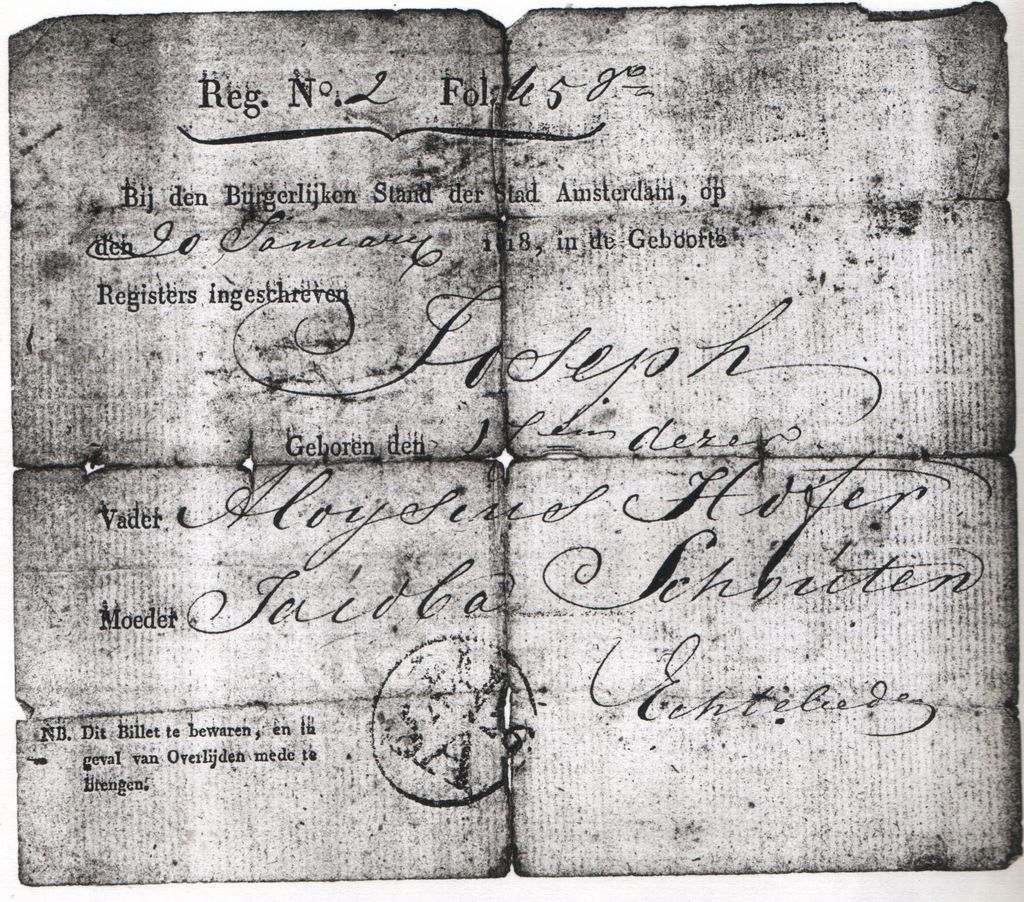 Reg. No. 2 Fol. 45 vo
Bij den Burgerlijken Stand der Stad Amsterdam, op
den 20 January 1818, in de Geboorte
Registers ingeschreven
Joseph
Geboren den dezer
Vader Aloysius Hofer
Moeder Jacoba Schouten
Echtelieden
NB. Dit Billet te bewaren, en in
geval van Overlijden mede te
brengen.